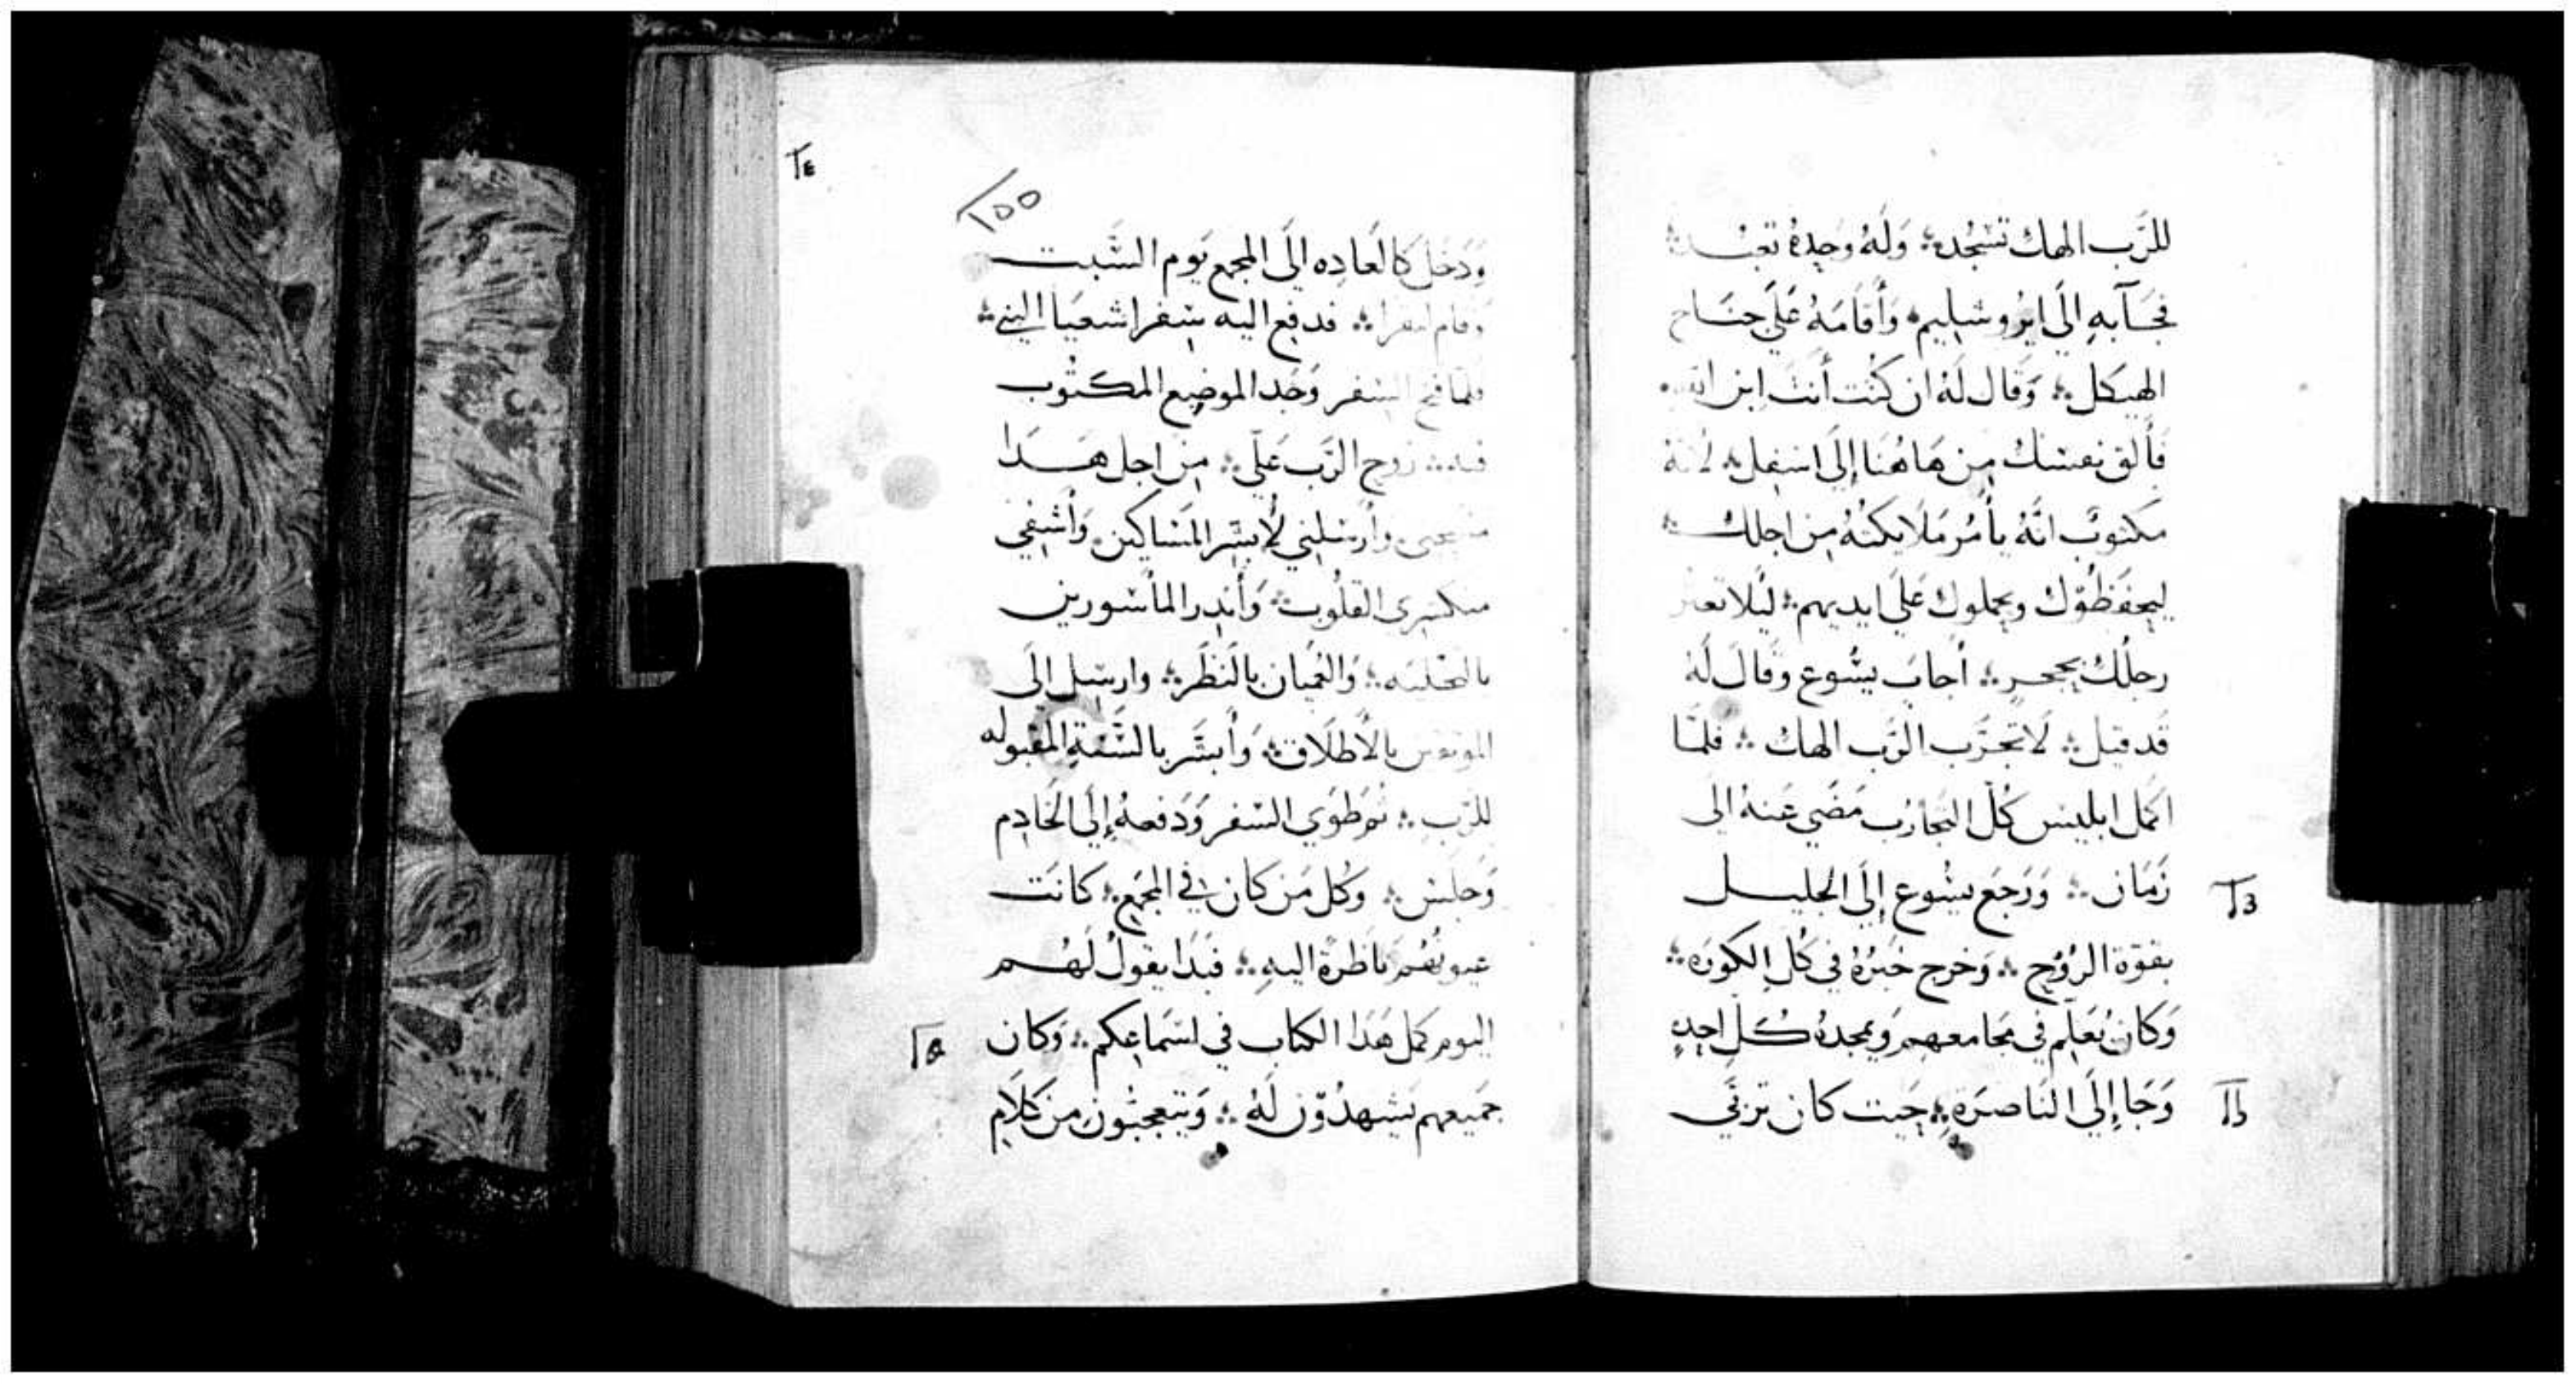 للرَّب الهك تسْجُد؞ وَلَهُ وَحِدهُ تعبُد
فجَآ بهِ إلَى ايرُوشليم؞ وَأَقَامَهُ عَلَى جنَاح
الهيَكل؞ وَقال لَهُ ان كنُت أَنتَ ابن الله
فَأَلق نفسَك مِن هَاهُنَا إلَى اسْفل؞ لانهُ
مكتوبٌ انَّهُ يأمُر مَلايكتُهُ مِن اجلك؞
ليَحفَظُوك ويحملوك عَلَى ايديهم؞ ليَلا تعثر
رجلُكَ بحجرٍ؞ أجابَ يسُوع وقَالَ لَهُ
قَد قيل؞ لَا تجرَّب الرَّب الهك؞ فلمَّا
اكمل ابليس كُلّ التجارُب مَضَى عَنهُ الى
زَمَان؞ وَرَجَع يسُوع إلَى الجليل
بقوّة الرُوُح؞ وَخرج خَبَرُهُ في كُل الكورَه؞
وَكانَ يُعَلِّم في مجَامعهِم وَيمجدهُ كُلّ احِدٍ
وَجَا إلَى النَاصرَةِ؞ حَيت كان تربَّى
T3
Tb
TE
١٥٥
وَدَخل كالعَادِه الَى المجمع يَوم السَّبت
وقام ليقرا؞ فدفع اليه سِفر اشعيَا النبي؞
فلما فتح السفر وَجَد الموضِع المكتُوب
فيه؞ روح الرَّب عَلَى؞ مِن اجل هَدا
مسحني وأَرسَلني لأبشّر المَسَاكين وَأَشفي
منكسري القلُوب؞ وَأُندر المأسُورين
بالتخليه؞ وَالعُميَان بالنَظَر؞ وارسِل إلَى
بالأطلَاق؞ وَأبشَّر بالسَّنةِ المقبوله
للرّب؞ ثم طَوَى السّفر وَدَفعهُ إلَى الخَادِم
وَجلس؞ وَكُل مَن كان في المجمَع؞ كانَت
عيونهُم نَاظرةً اليهِ؞ فبَدا يقولُ لَهُم
اليوم كمل هَدا الكتاب في اسمَاعِكم؞ وَكان
جَميعهم يَشهدُون لَهُ؞ وَيتعجبُون مِن كَلَام